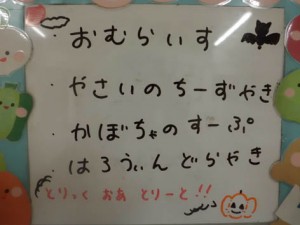 ・おむらいす
・やさいのちーずやき
・かぼちゃのすーぷ
・はろうぃんどらやき
とりっく おあ とりーと!!